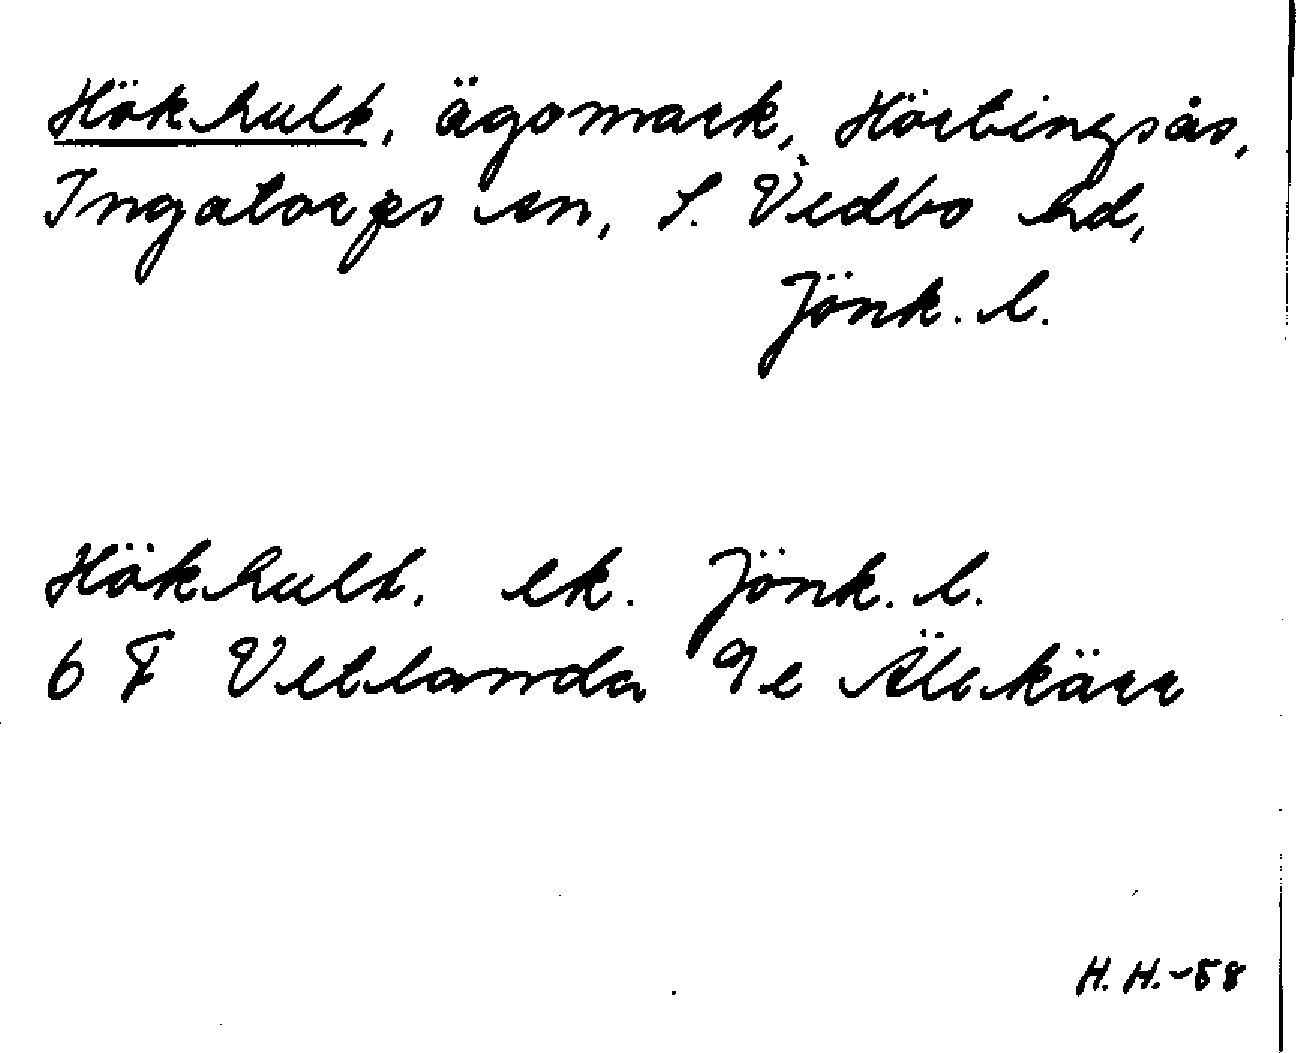 Hökhult, ägomark, Hörtingsås,
Ingatorps sn, S. Vedbo hd,
Jönk. l.
Hökhult. ek. Jönk. l.
6 F Vetlanda 9e Älekärr
H. H. -58